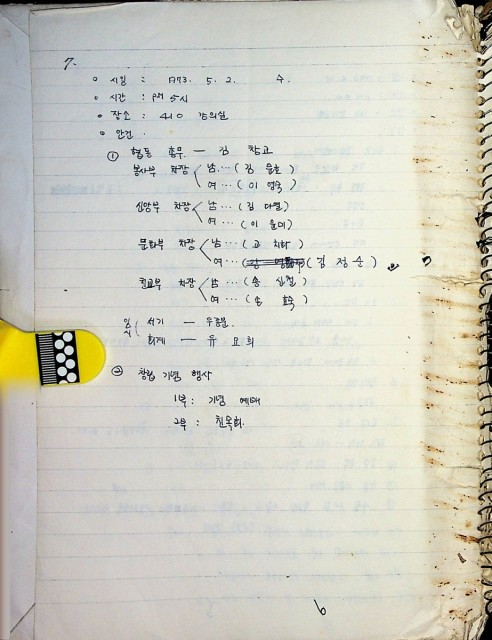 7.
○ 시일 : 1973. 5. 2. 수.
○ 시간 : PM 5시
○ 장소 : 410 강의실
○ 안건 .
① 협동 총무 — 김 창교
봉사부 차장 남 … ( 김 용호 )
여 … ( 이 영숙 )
신앙부 차장 남 … ( 김 다열 )
여 … ( 이 윤미 )
문화부 차장 남 … ( 고 치하 )
여 … ( 김 정순 )
선교부 차장 남 … ( 송 신철 )
여 … ( 손 효숙 )
임시 서기 — 우종분.
회계 — 유 요희
② 창립 기념 행사
1부 : 기념 예배
2부 : 친목회.
6